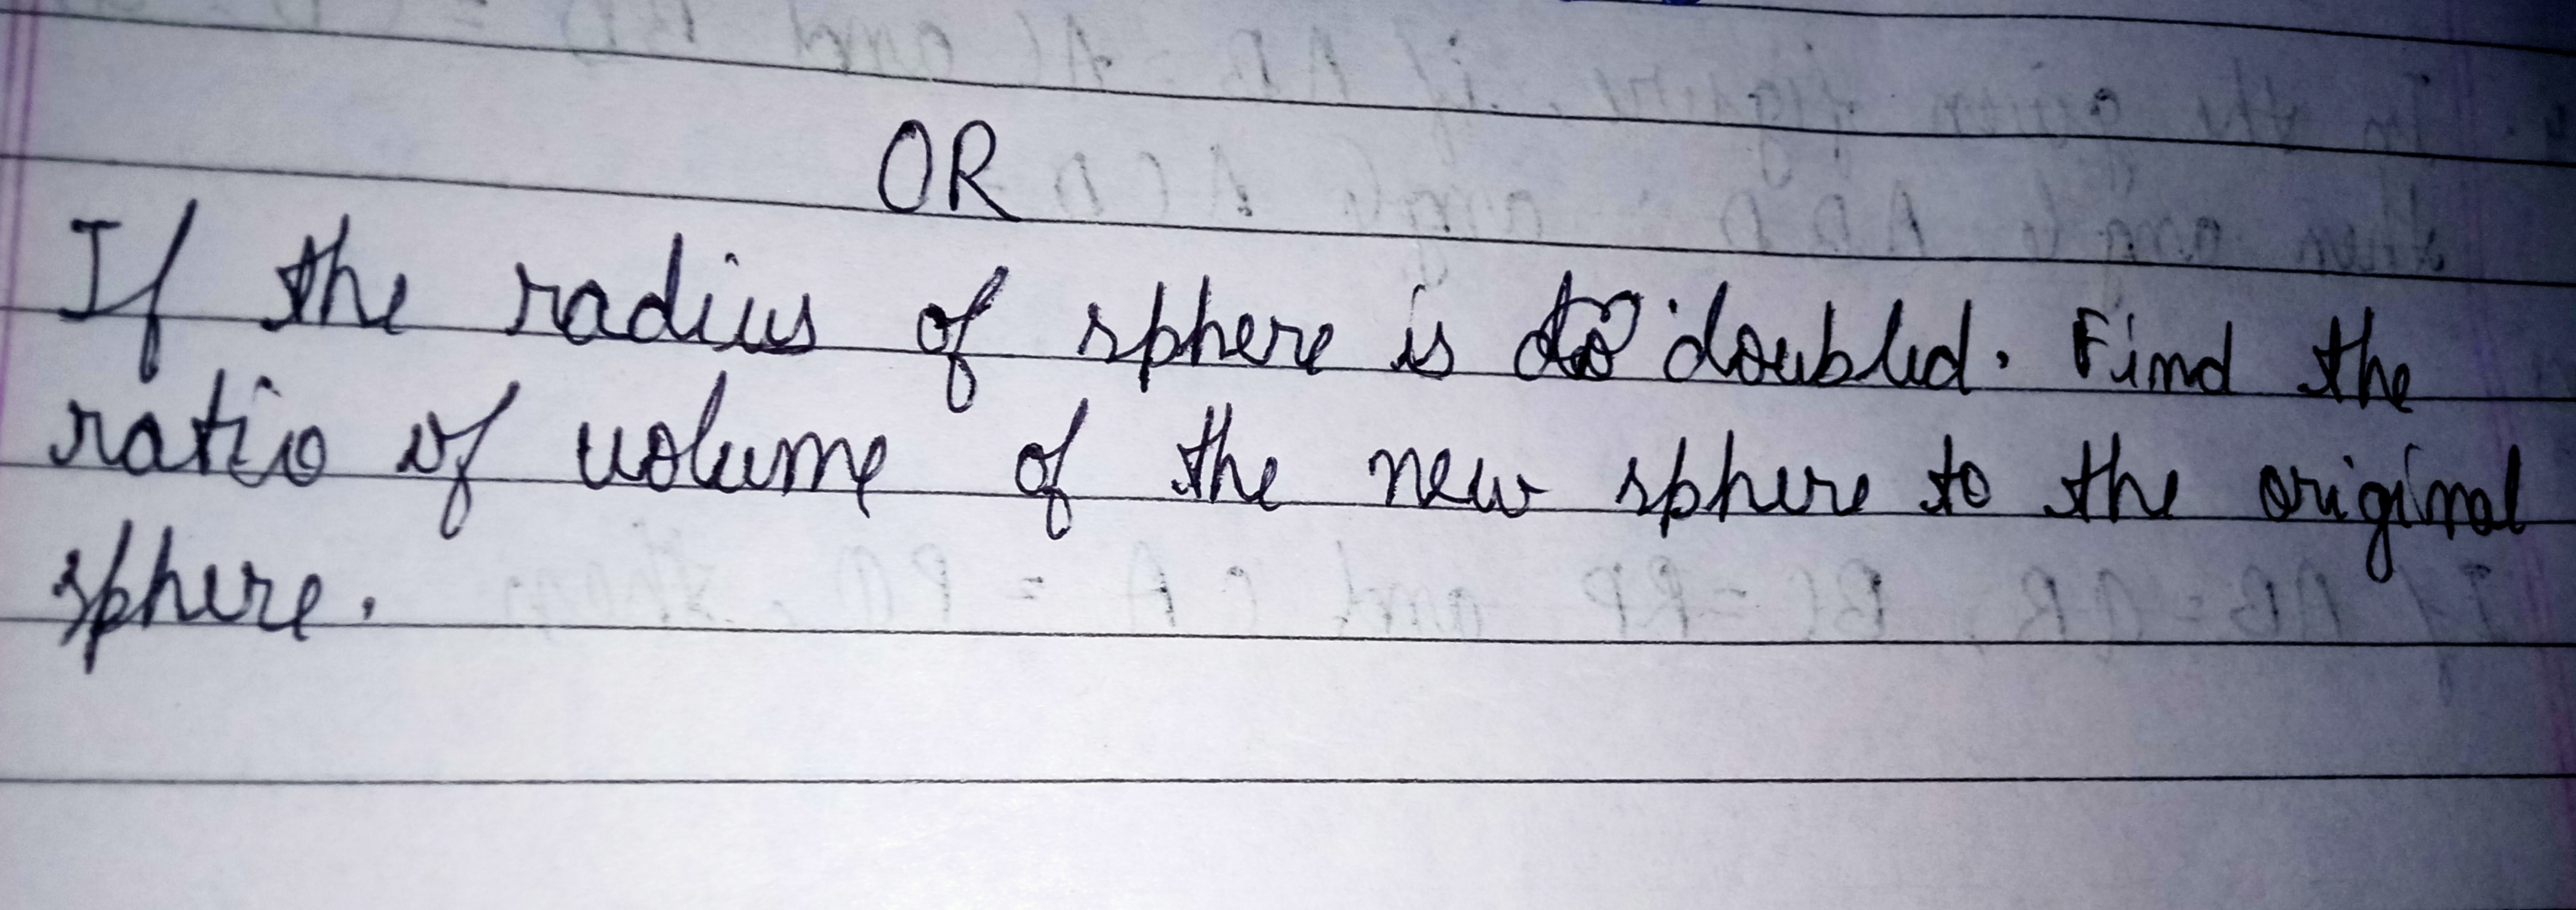 OR
If the radius of sphere is doubled. Find the
ratio of volume of the new sphere to the original
sphere.